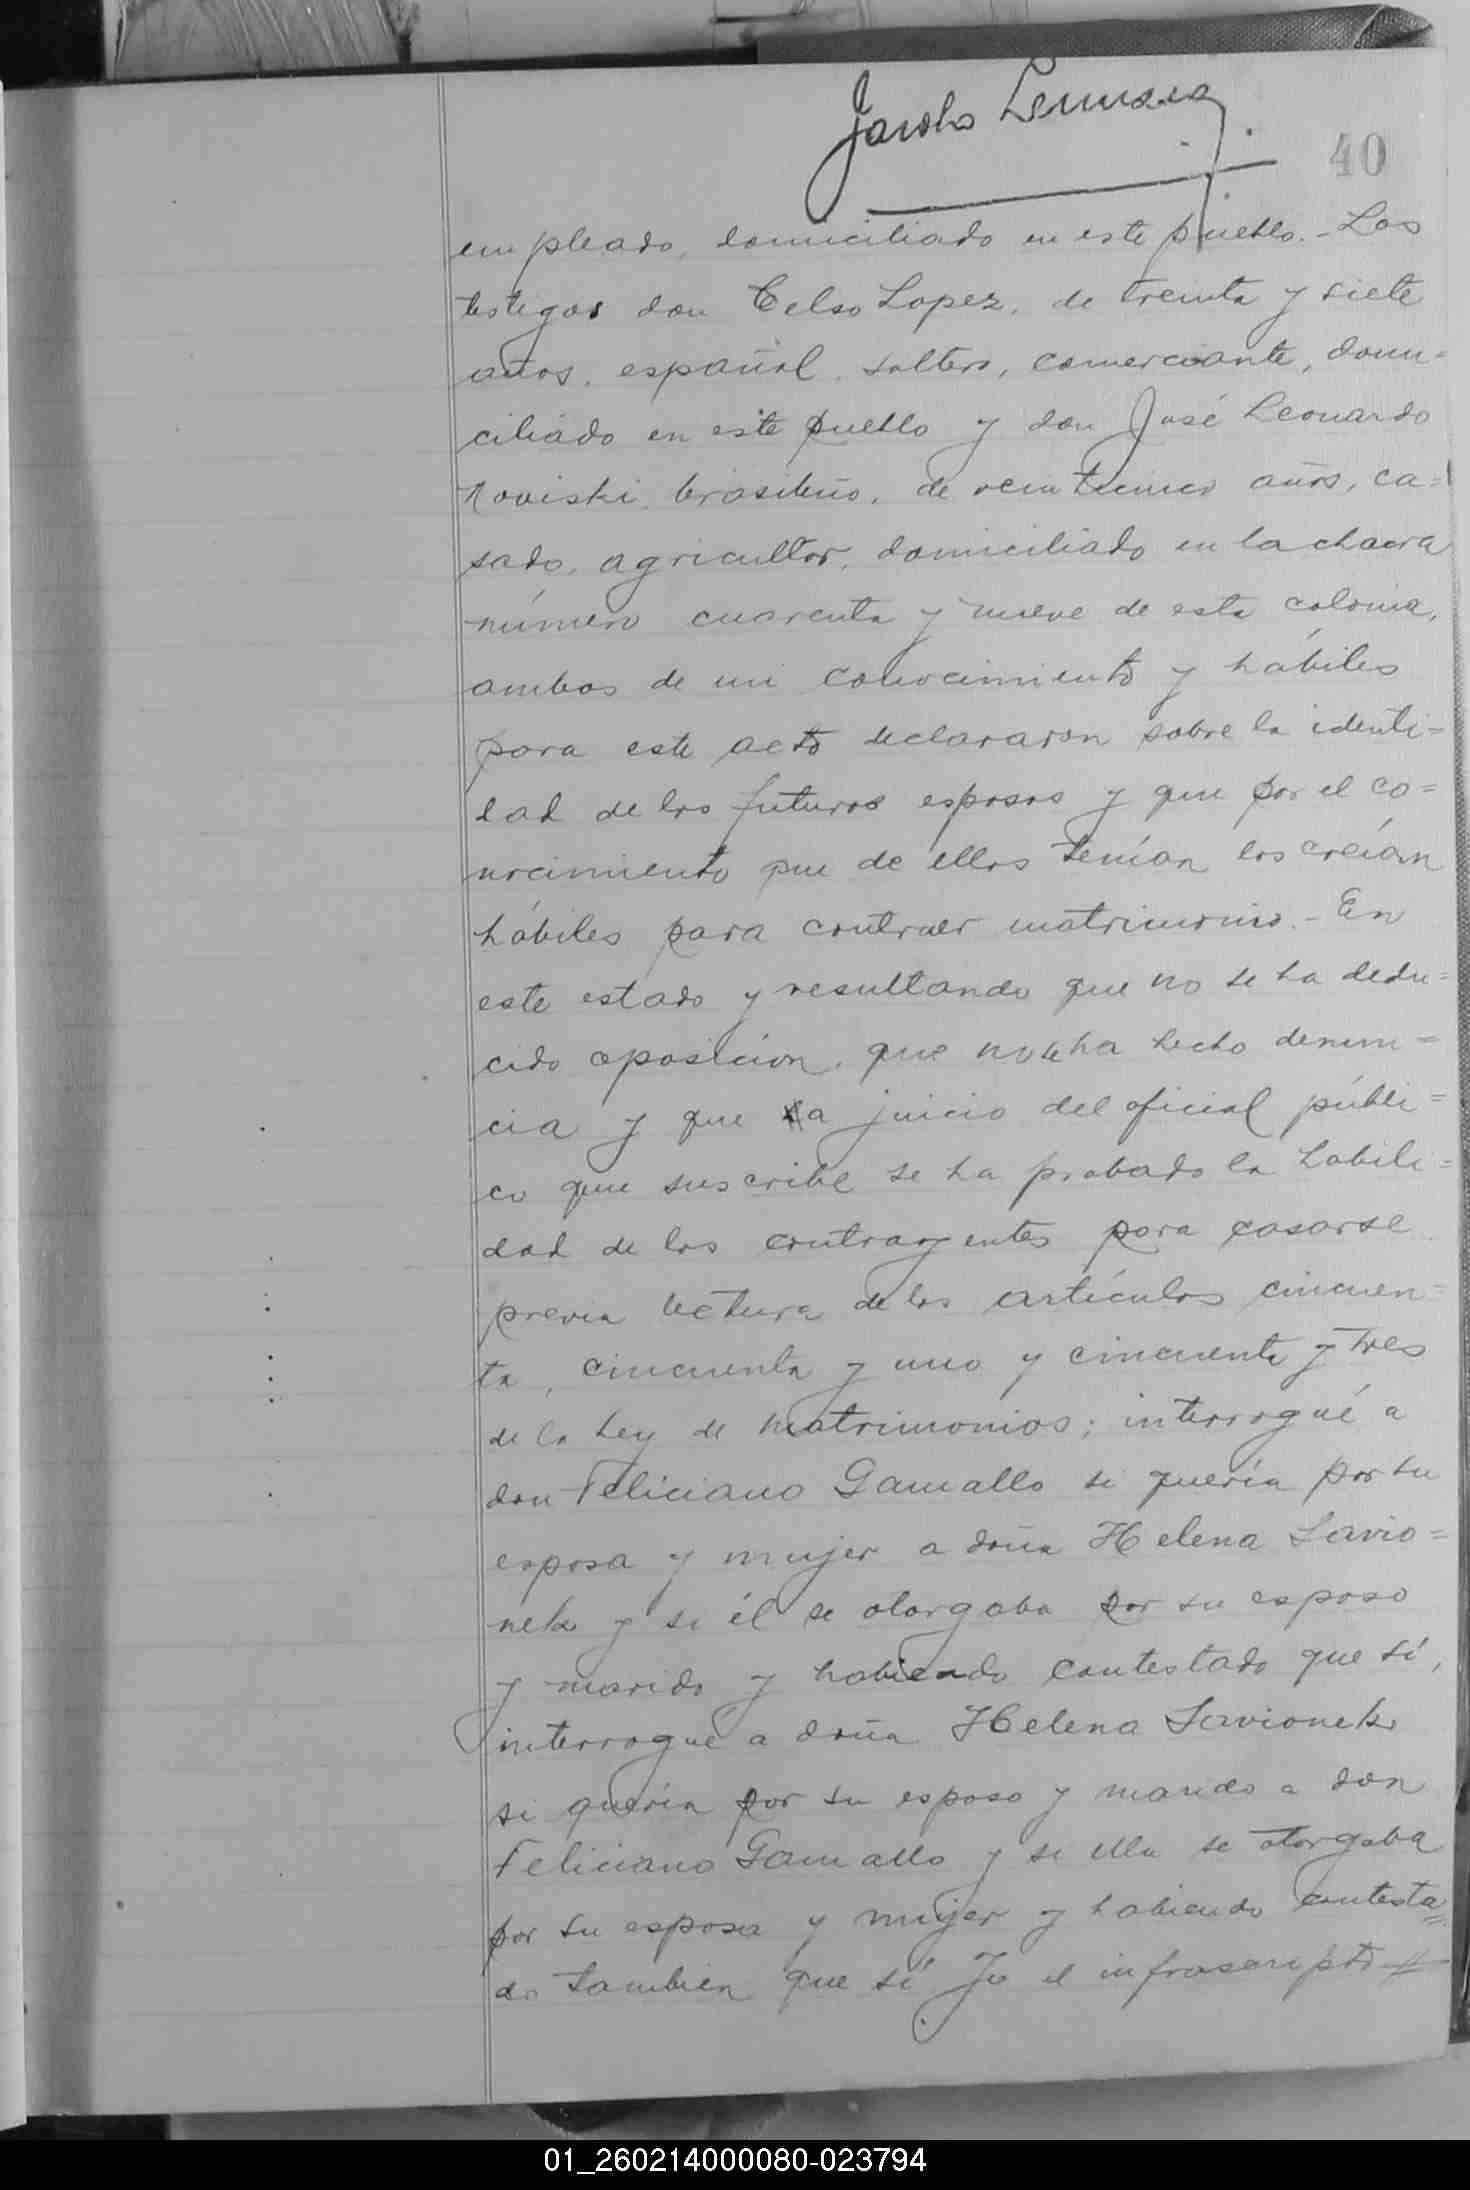 40
empleado, domiciliado en este pueblo. - Los
testigos don Celso Lopez, de treinta y siete
años, español, soltero, comerciante, domi=
ciliado en este pueblo y don José Leonardo
Noviski, brasileño, de veinticinco años, ca=
sado, agricultor, domiciliado en la chacra
número cuarenta y nueve de esta colonia,
ambos de mi conocimiento y hábiles
para este acto declararon sobre la identi=
dad de los futuros esposos y que por el co=
nocimiento que de ellos tenían los creían
hábiles para contraer matrimonio. - En
este estado y resultando que no se ha dedu=
cido oposición, que no se ha hecho denun=
cia y que a juicio del oficial públi=
co que suscribe se ha probado la habili=
dad de los contrayentes para casarse
previa lectura de los artículos cincuen=
ta, cincuenta y uno y cincuenta y tres
de la Ley de Matrimonios; interrogué a
don Feliciano Gamallo si quería por su
esposa y mujer a doña Helena Savio=
nek y si él se otorgaba por su esposo
y marido y habiendo contestado que sí,
interrogué a doña Helena Savionek
si quería por su esposo y marido a don
Feliciano Gamallo y si ella se otorgaba
por su esposa y mujer y habiendo contesta=
do tambien que sí Yo el infrascripto
01_260214000080-023794